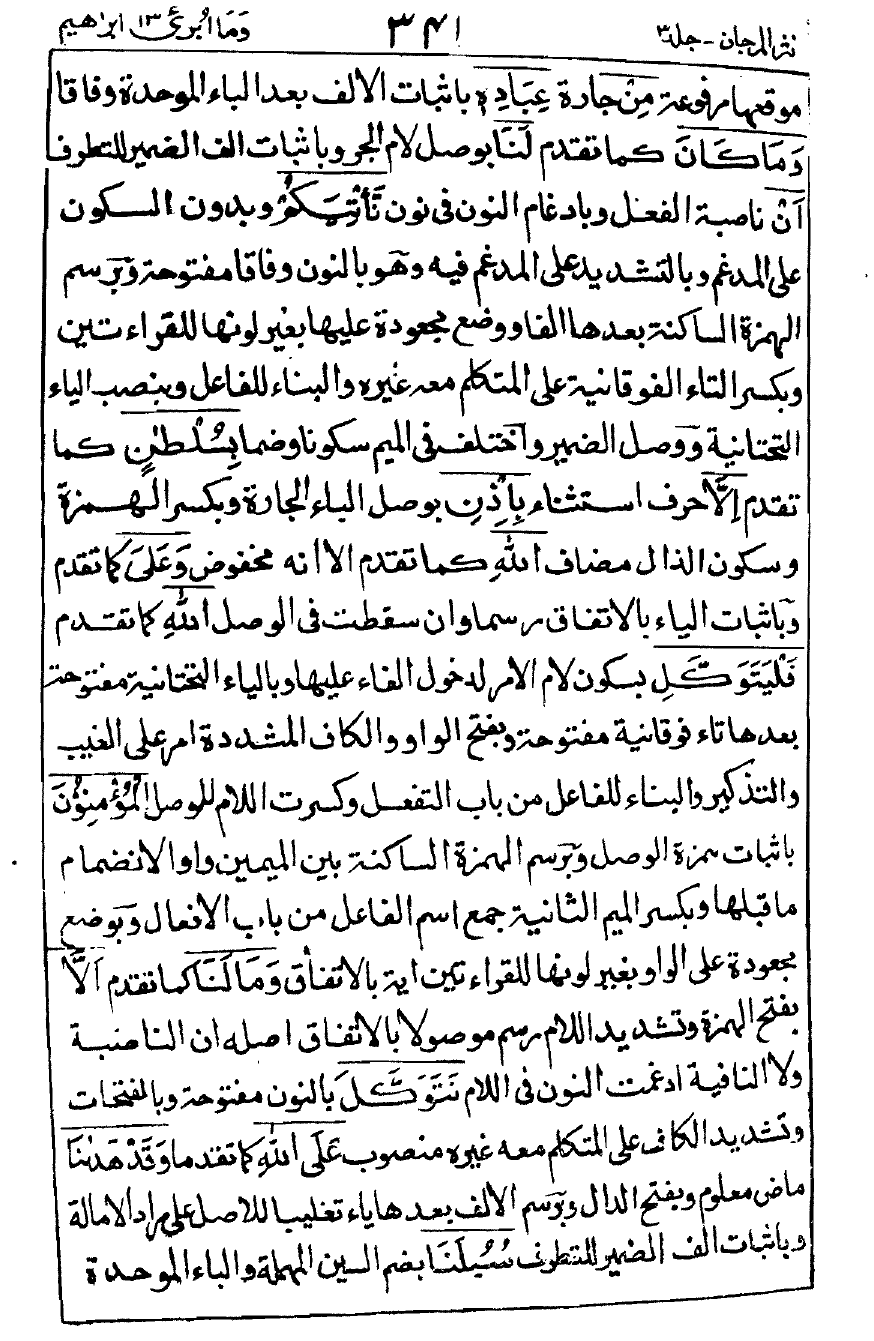 نثر المرجان - جلد ٣ ٣٤١ وَمَا أُبَرِّئُ ١٣ ابراهيم
موقعها مرفوعة مِنْ جارة عِبَادِهٖ باثبات الالف بعد الباء الموحدة وفاقا
وَمَا كَانَ كما تقدم لَنَا بوصل لام الجر وباثبات الف الضمير للتطرف
اَنْ ناصبة الفعل وبادغام النون فى نون نَّأْتِيَكُمْ وبدون السكون
على المدغم وبالتشديد على المدغم فيه وهو بالنون وفاقا مفتوحة وبرسم
الهمزة الساكنة بعدها الفا ووضع مجعودة عليها بغير لونها للقراءتين
وبكسر التاء الفوقانية على المتكلم معه غيره والبناء للفاعل وبنصب الياء
التحتانية ووصل الضمير واختلف فى الميم سكونا وضما بِسُلْطٰنٍ كما
تقدم اِلَّا حرف استثناء بِاِذْنِ بوصل الباء الجارة وبكسر الهمزة
وسكون الذال مضاف اللّٰهِ كما تقدم الا انه مخفوض وَعَلَى كما تقدم
وباثبات الياء بالاتفاق رسما وان سقطت فى الوصل اللّٰهِ كما تقدم
فَلْيَتَوَكَّلِ بسكون لام الامر لدخول الفاء عليها وبالياء التحتانية مفتوحة
بعدها تاء فوقانية مفتوحة وبفتح الواو والكاف المشددة امر على الغيب
والتذكير والبناء للفاعل من باب التفعل وكسرت اللام للوصل الْمُؤْمِنُوْنَ
باثبات همزة الوصل وبرسم الهمزة الساكنة بين الميمين واوا لانضمام
ما قبلها وبكسر الميم الثانية جمع اسم الفاعل من باب الافعال وبوضع
مجعودة على الواو بغير لونها للقراءتين اية بالاتفاق وَمَا لَنَا كما تقدم اَلَّا
بفتح الهمزة وتشديد اللام رسم موصولا بالاتفاق اصله ان الناصبة
ولا النافية ادغمت النون فى اللام نَتَوَكَّلَ بالنون مفتوحة وبالفتحات
وتشديد الكاف على المتكلم معه غيره منصوب عَلَى اللّٰهِ كما تقدما وَقَدْ هَدٰىنَا
ماض معلوم وبفتح الدال وبرسم الالف بعدها ياء تغليبا للاصل على مراد الامالة
وباثبات الف الضمير للتطرف سُبُلَنَا بضم السين المهملة والباء الموحدة